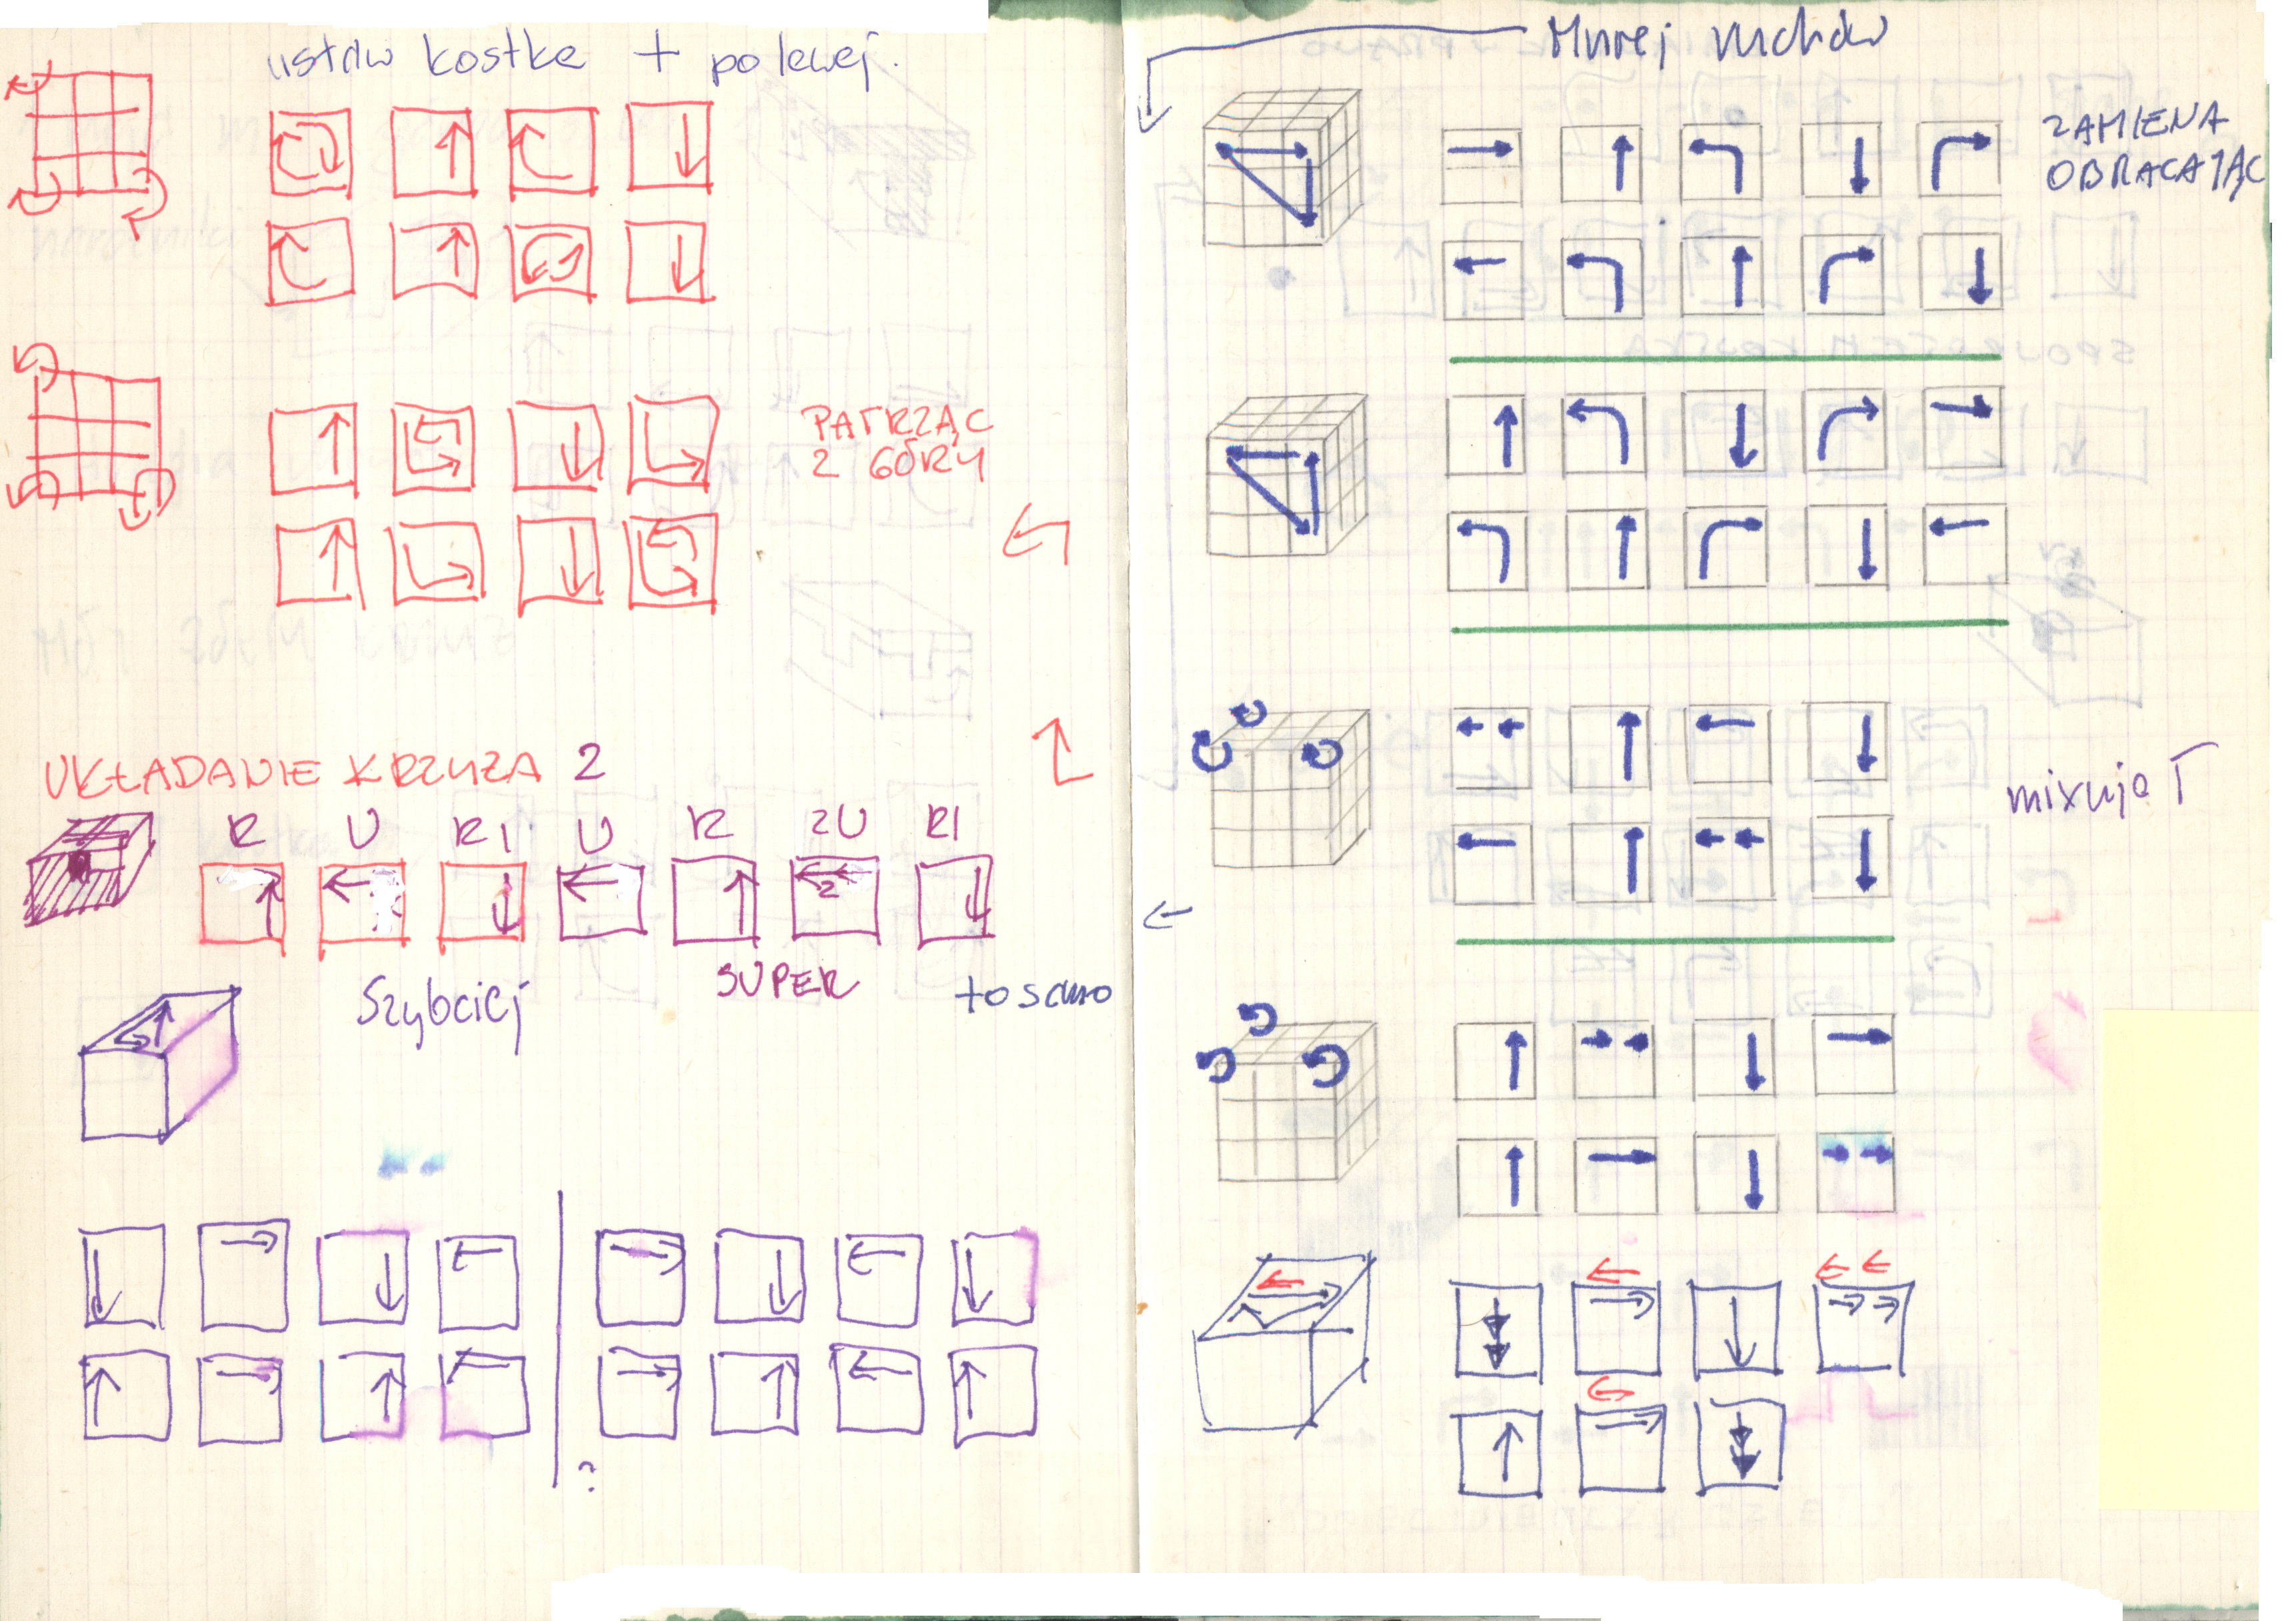 ustaw kostkę + po lewej.
PATRZĄC
Z GÓRY
UKŁADANIE KRZYŻA 2
R U R1 U R 2U R1
2
Szybciej
SUPER
to samo
?
Mniej ruchów
ZAMIENA
OBRACAJĄC
mixuje T